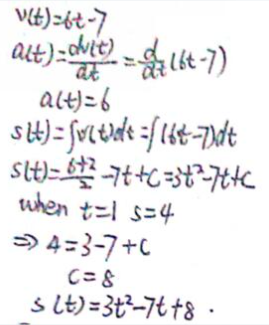 v(t)=6t-7
a(t)=dv(t)/dt=d/dt(6t-7)
a(t)=6
s(t)=∫v(t)dt=∫(6t-7)dt
s(t)=6t²/2-7t+c=3t²-7t+c
when t=1 s=4
⇒ 4=3-7+c
c=8
s(t)=3t²-7t+8 .